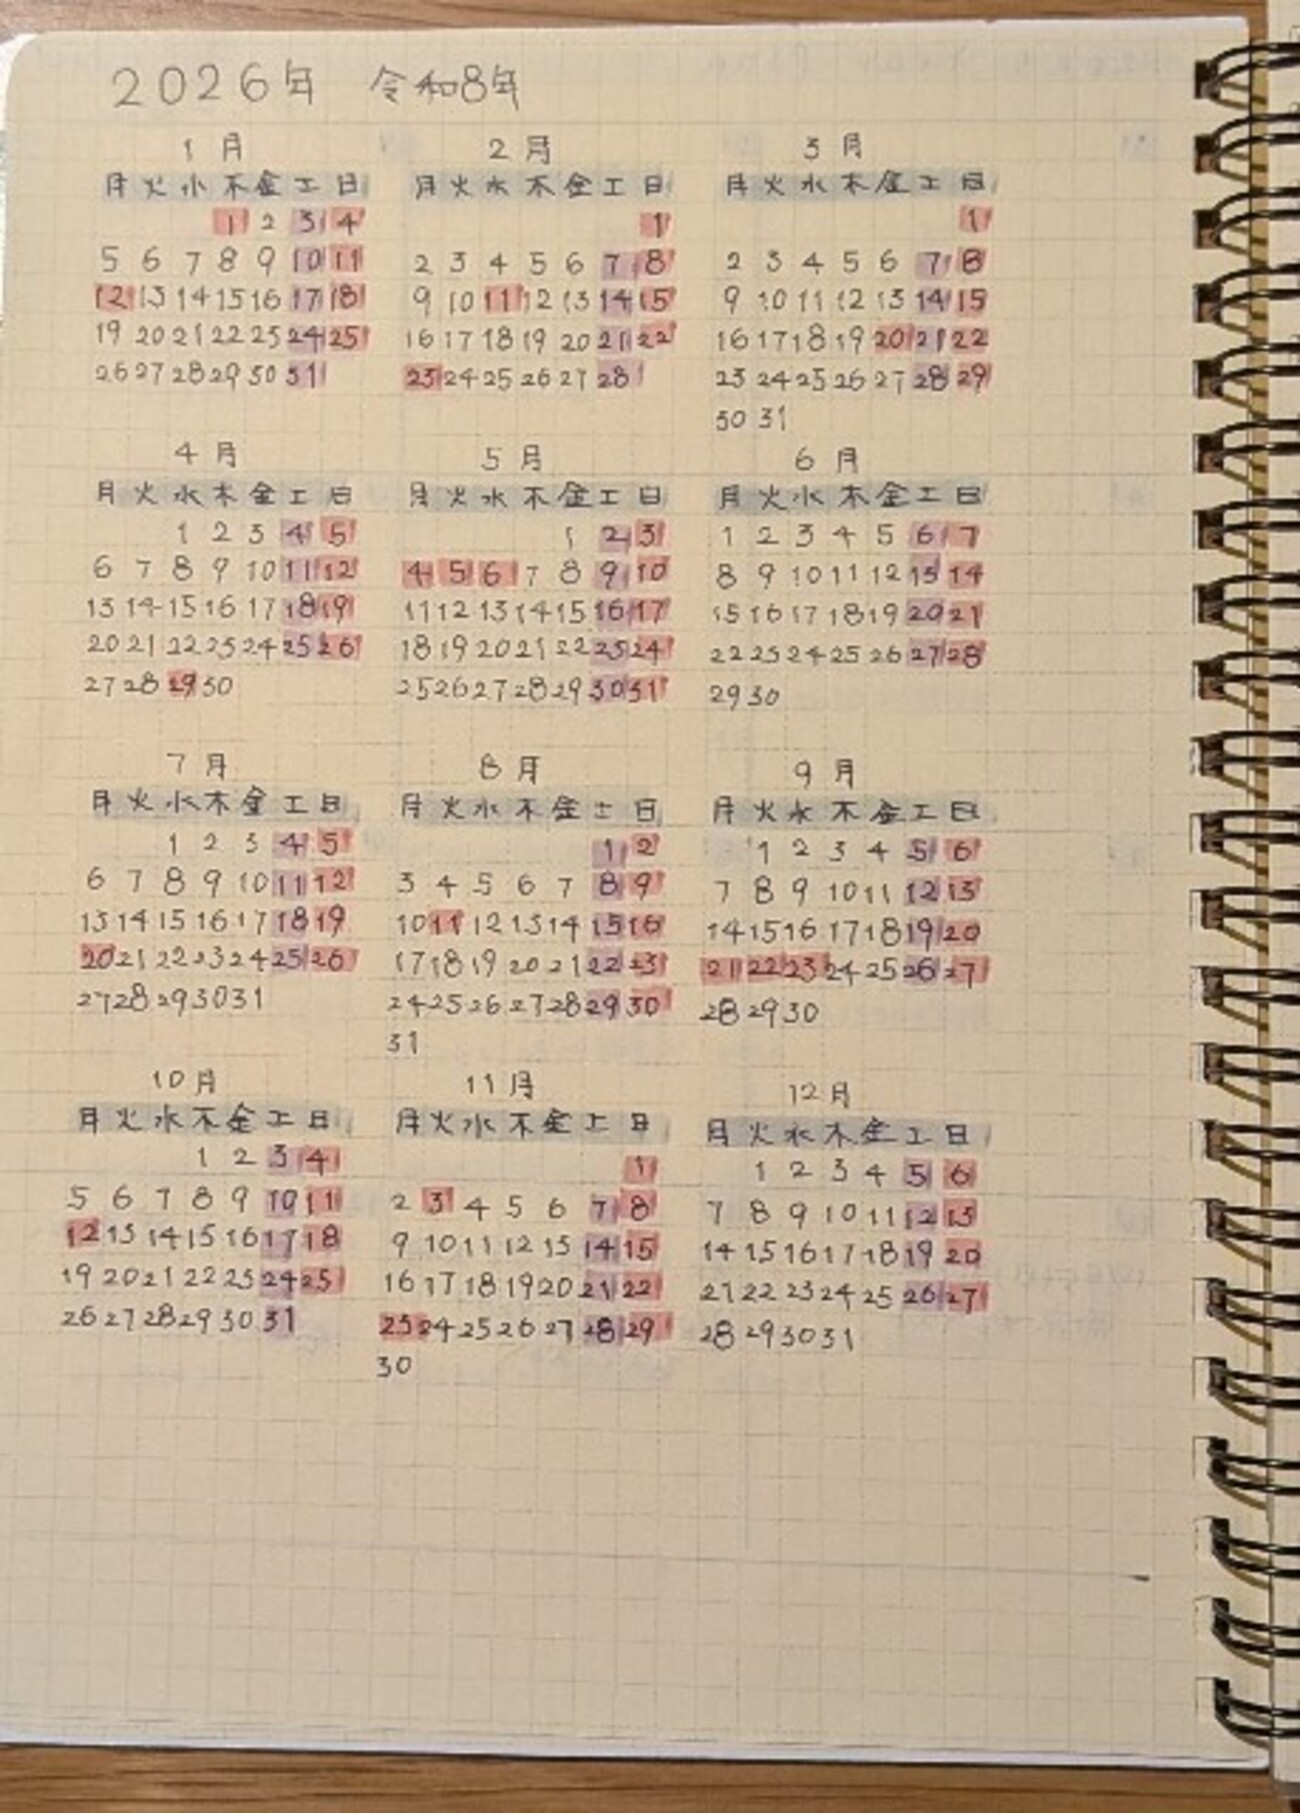 2026年 令和8年
1月 2月 3月
月火水木金土日 月火水木金土日 月火水木金土日
1 2 3 4 1 1
5 6 7 8 9 10 11 2 3 4 5 6 7 8 2 3 4 5 6 7 8
12 13 14 15 16 17 18 9 10 11 12 13 14 15 9 10 11 12 13 14 15
19 20 21 22 23 24 25 16 17 18 19 20 21 22 16 17 18 19 20 21 22
26 27 28 29 30 31 23 24 25 26 27 28 23 24 25 26 27 28 29
30 31
4月 5月 6月
月火水木金土日 月火水木金土日 月火水木金土日
1 2 3 4 5 1 2 3 1 2 3 4 5 6 7
6 7 8 9 10 11 12 4 5 6 7 8 9 10 8 9 10 11 12 13 14
13 14 15 16 17 18 19 11 12 13 14 15 16 17 15 16 17 18 19 20 21
20 21 22 23 24 25 26 18 19 20 21 22 23 24 22 23 24 25 26 27 28
27 28 29 30 25 26 27 28 29 30 31 29 30
7月 8月 9月
月火水木金土日 月火水木金土日 月火水木金土日
1 2 3 4 5 1 2 1 2 3 4 5 6
6 7 8 9 10 11 12 3 4 5 6 7 8 9 7 8 9 10 11 12 13
13 14 15 16 17 18 19 10 11 12 13 14 15 16 14 15 16 17 18 19 20
20 21 22 23 24 25 26 17 18 19 20 21 22 23 21 22 23 24 25 26 27
27 28 29 30 31 24 25 26 27 28 29 30 28 29 30
31
10月 11月 12月
月火水木金土日 月火水木金土日 月火水木金土日
1 2 3 4 1 1 2 3 4 5 6
5 6 7 8 9 10 11 2 3 4 5 6 7 8 7 8 9 10 11 12 13
12 13 14 15 16 17 18 9 10 11 12 13 14 15 14 15 16 17 18 19 20
19 20 21 22 23 24 25 16 17 18 19 20 21 22 21 22 23 24 25 26 27
26 27 28 29 30 31 23 24 25 26 27 28 29 28 29 30 31
30